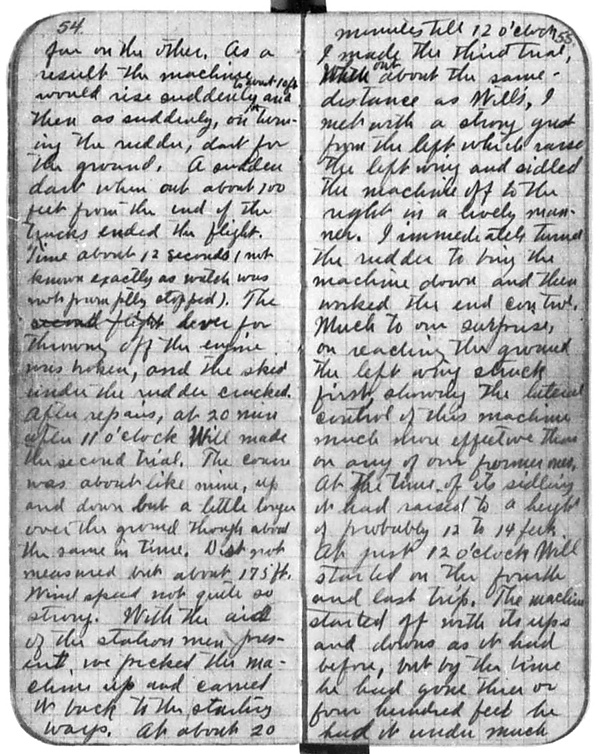 54.
far on the other. As a
result the machine
would rise suddenly to about 10 ft. and
then as suddenly, on turn-
ing the rudder, dart for
the ground. A sudden
dart when out about 100
feet from the end of the
tracks ended the flight.
Time about 12 seconds (not
known exactly as watch was
not promptly stopped). The
second flight lever for
throwing off the engine
was broken, and the skid
under the rudder cracked.
After repairs, at 20 min
after 11 o'clock Will made
the second trial. The course
was about like mine, up
and down but a little longer
over the ground though about
the same in time. Dist. not
measured but about 175 ft.
Wind speed not quite so
strong. With the aid
of the station men pres-
ent, we picked the ma-
chine up and carried
it back to the starting
ways. At about 20
55
minutes till 12 o'clock
I made the third trial.
When out about the same
distance as Will's, I
met with a strong gust
from the left which raised
the left wing and sidled
the machine off to the
right in a lively man-
ner. I immediately turned
the rudder to bring the
machine down and then
worked the end control.
Much to our surprise,
on reaching the ground
the left wing struck
first, showing the lateral
control of this machine
much more effective than
on any of our former ones.
At the time of its sidling
it had raised to a height
of probably 12 to 14 feet.
At just 12 o'clock Will
started on the fourth
and last trip. The machine
started off with its ups
and downs as it had
before, but by the time
he had gone three or
four hundred feet he
had it under much